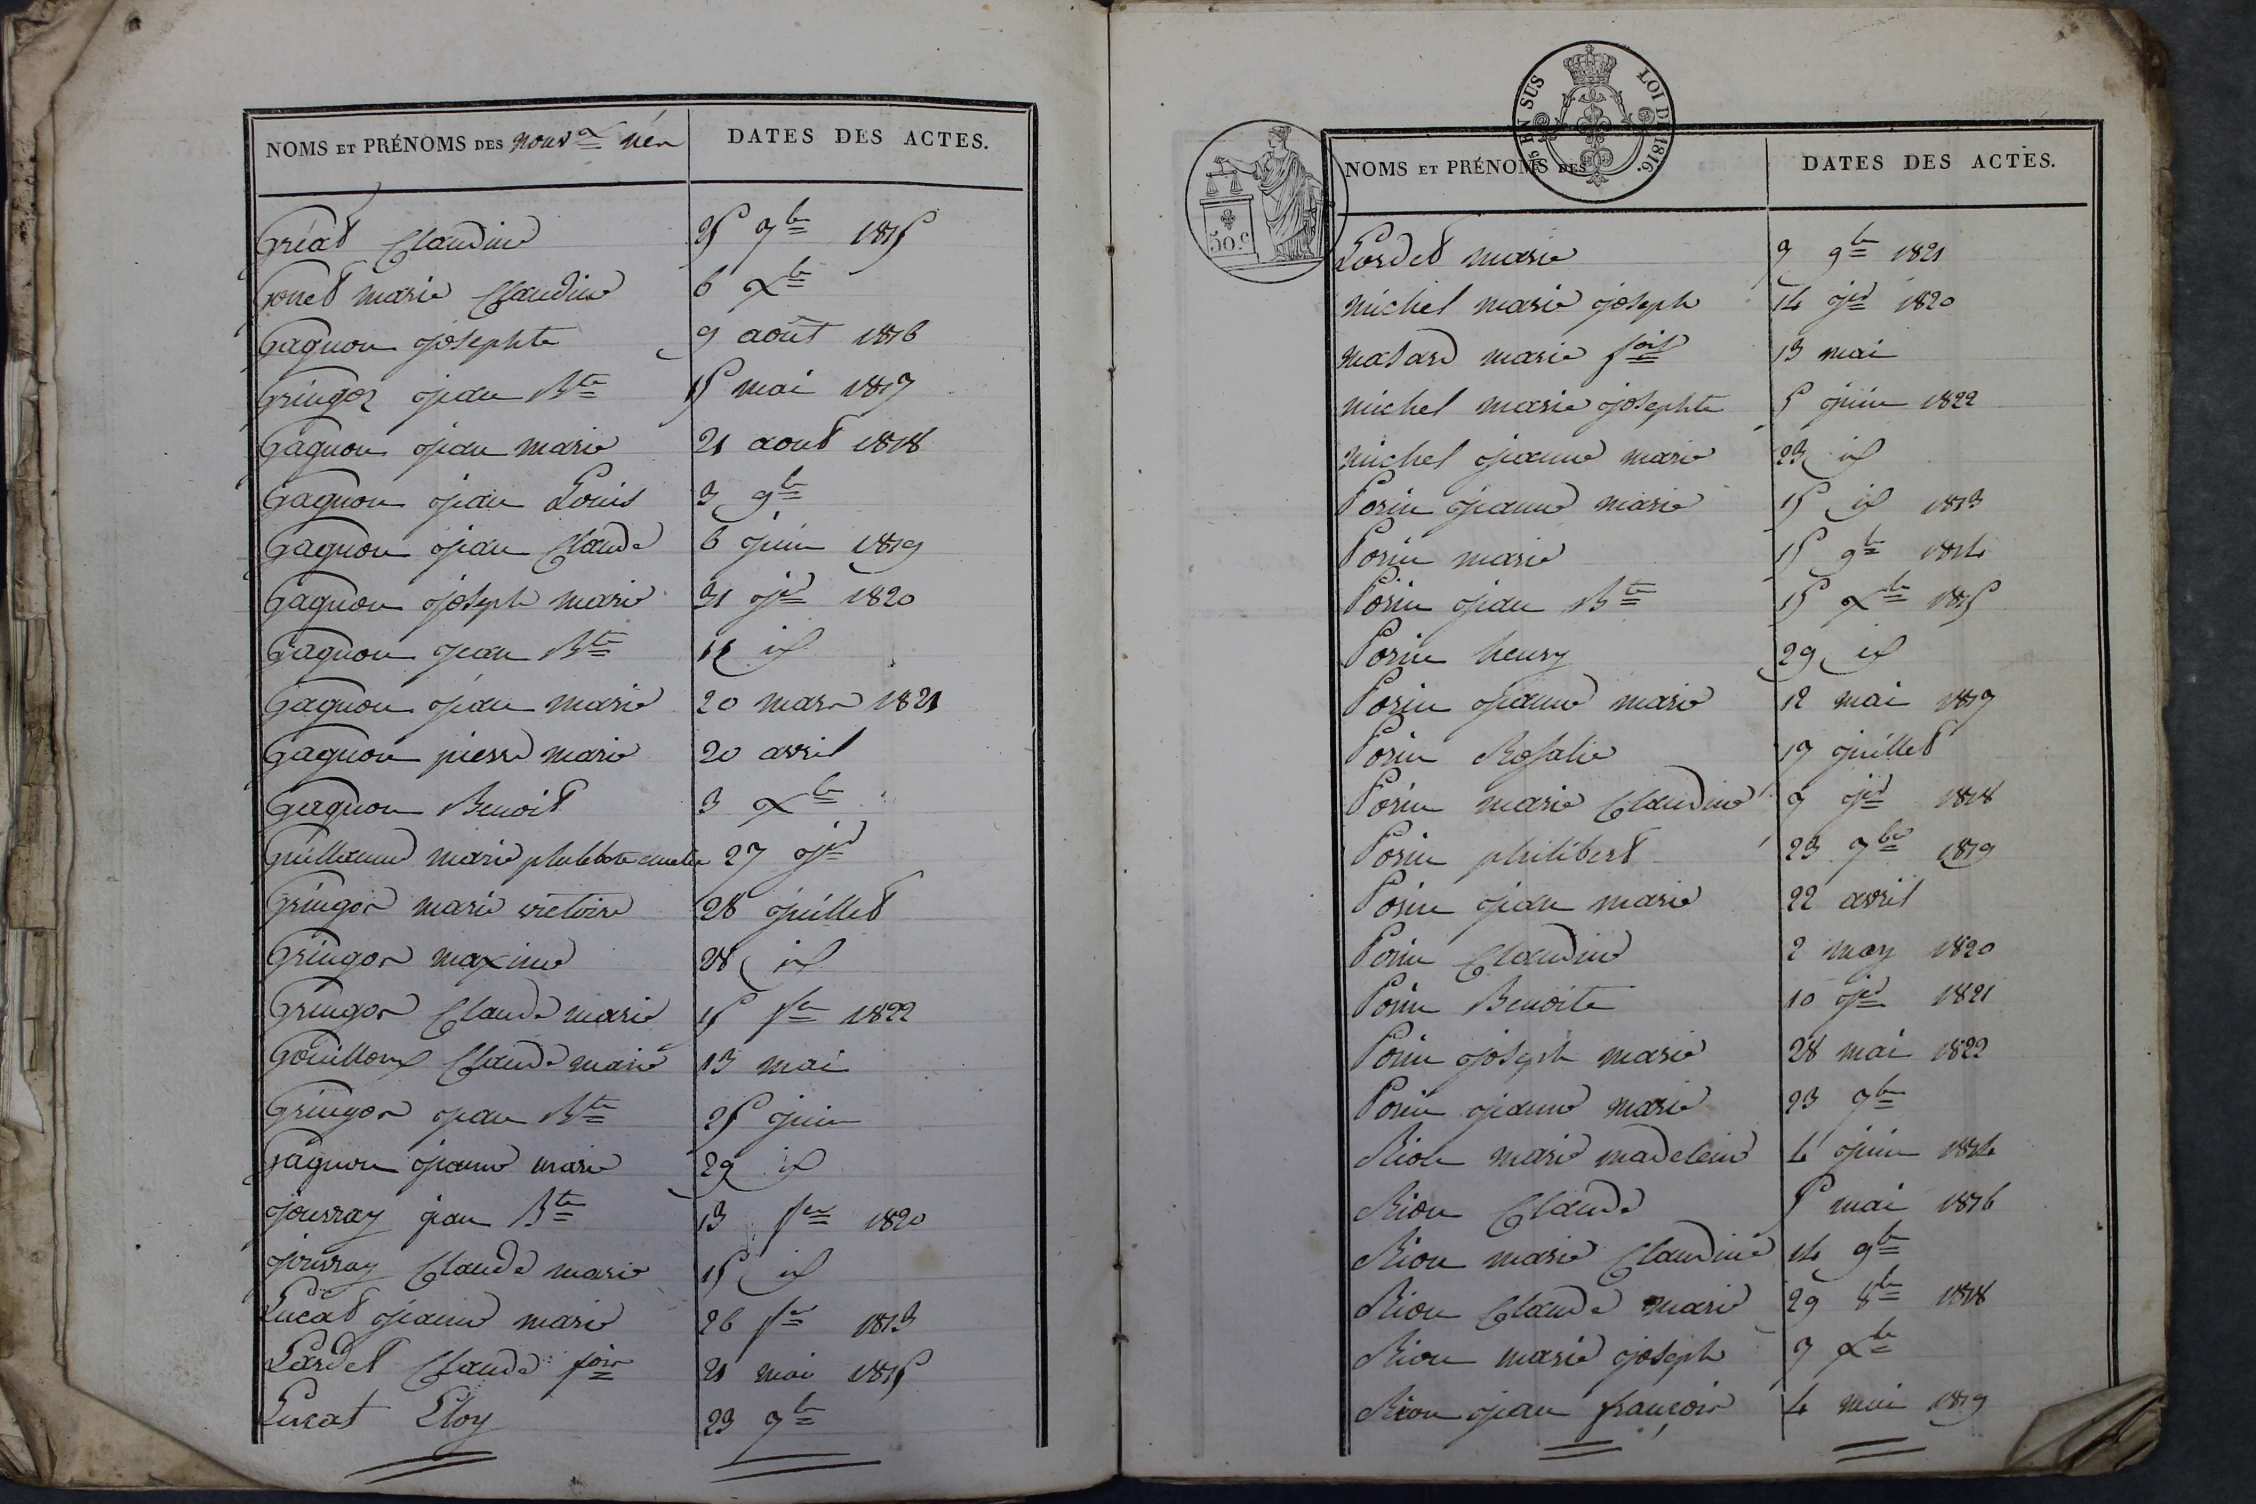 NOMS ET PRÉNOMS DES nouvx nés
DATES DES ACTES.
Gréat Claudine 25 7bre 1815
Gonet marie Claudine 6 Xbre
Gagnon josephte 9 août 1816
Gringoz jean Bte 15 mai 1817
Gagnon jean marie 21 aout 1818
Gagnon jean Louis 3 9bre
Gagnon jean Claude 6 juin 1819
Gagnon joseph marie 31 jer 1820
Gagnon jean Bte id
Gagnon jean marie 20 mars 1821
Gagnon pierre marie 20 avril
Gagnon Benoit 3 Xbre
Guillaume marie 27 jer
Gringos marie victoire 28 juillet
Gringos maxime 28 id
Gringos Claude marie 15 fer 1822
Gouilloux Claude marie 13 mai
Gringos jean Bte 25 juin
Gagnon jeanne marie 29 id
joussay jean Bte 13 fer 1820
joussay Claude marie 15 id
Lucat jeanne marie 26 fer 1813
Lardet Claude fois 21 mai 1815
Lucat Eloy 23 7bre
5 EN SUS LOI DE 1816.
50.c
NOMS ET PRÉNOMS DES
DATES DES ACTES.
Lordet marie 9 9bre 1821
michel marie joseph 14 jer 1820
marie foise 13 mai
michel marie josephte 5 juin 1822
michel jeanne marie 23 id
Porin jeanne marie 15 id 1813
Porin marie 15 9bre 1814
Porin jean Bte 15 Xbre 1815
Porin henry 29 id
Porin jeanne marie 12 mai 1817
Porin Rosalie 17 juillet
Porin marie Claudine 9 jer 1818
Porin philibert 23 7bre 1819
Porin jean marie 22 avril
Porin Claudine 2 may 1820
Porin Benoite 10 jer 1821
Porin joseph marie 28 mai 1822
Porin jeanne marie 23 7bre
Rion marie madeleine 4 juin 1814
Rion Claude 5 mai 1816
Rion marie Claudine 14 9bre
Rion Claude marie 29 8bre 1818
Rion marie joseph 7 Xbre
Rion jean françois 4 mai 1819